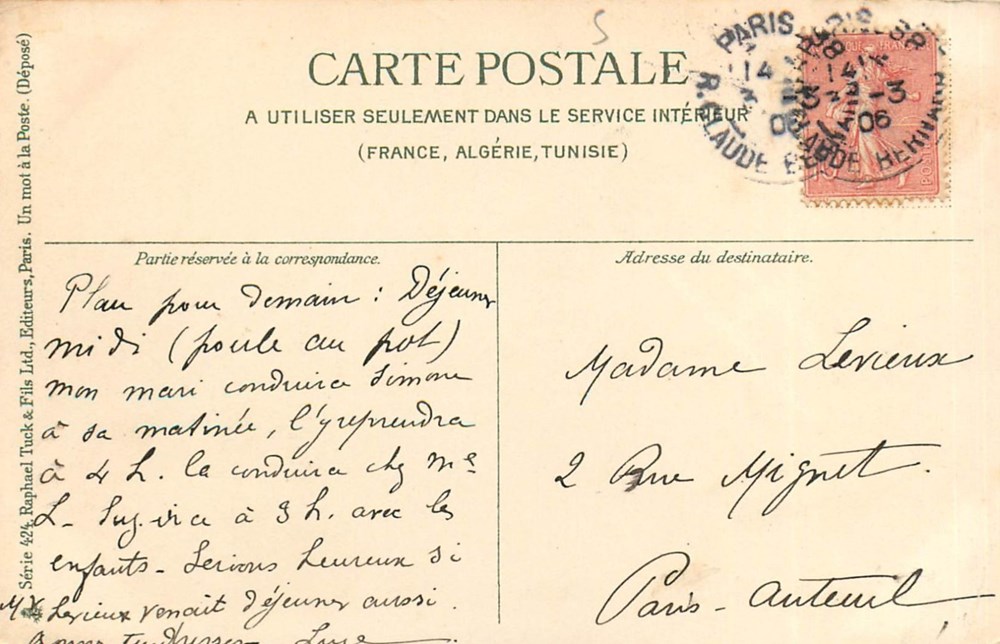 CARTE POSTALE
A UTILISER SEULEMENT DANS LE SERVICE INTÉRIEUR
(FRANCE, ALGÉRIE, TUNISIE)
PARIS
14
R. CLAUDE BERNARD
14
3-3
06
Série 424. Raphael Tuck & Fils Ltd., Editeurs, Paris. Un mot à la Poste. (Déposé)
Partie réservée à la correspondance.
Plan pour demain : Déjeuner
midi (poule au pot)
mon mari conduira Simone
à sa matinée, l'y reprendra
à 4 h. la conduira chez Me
L- à 3 h. avec les
enfants - Serions heureux si
Mr Levieux venait déjeuner aussi.
Bonnes tendresses
Adresse du destinataire.
Madame Levieux
2 Rue Mignet.
Paris-Auteuil